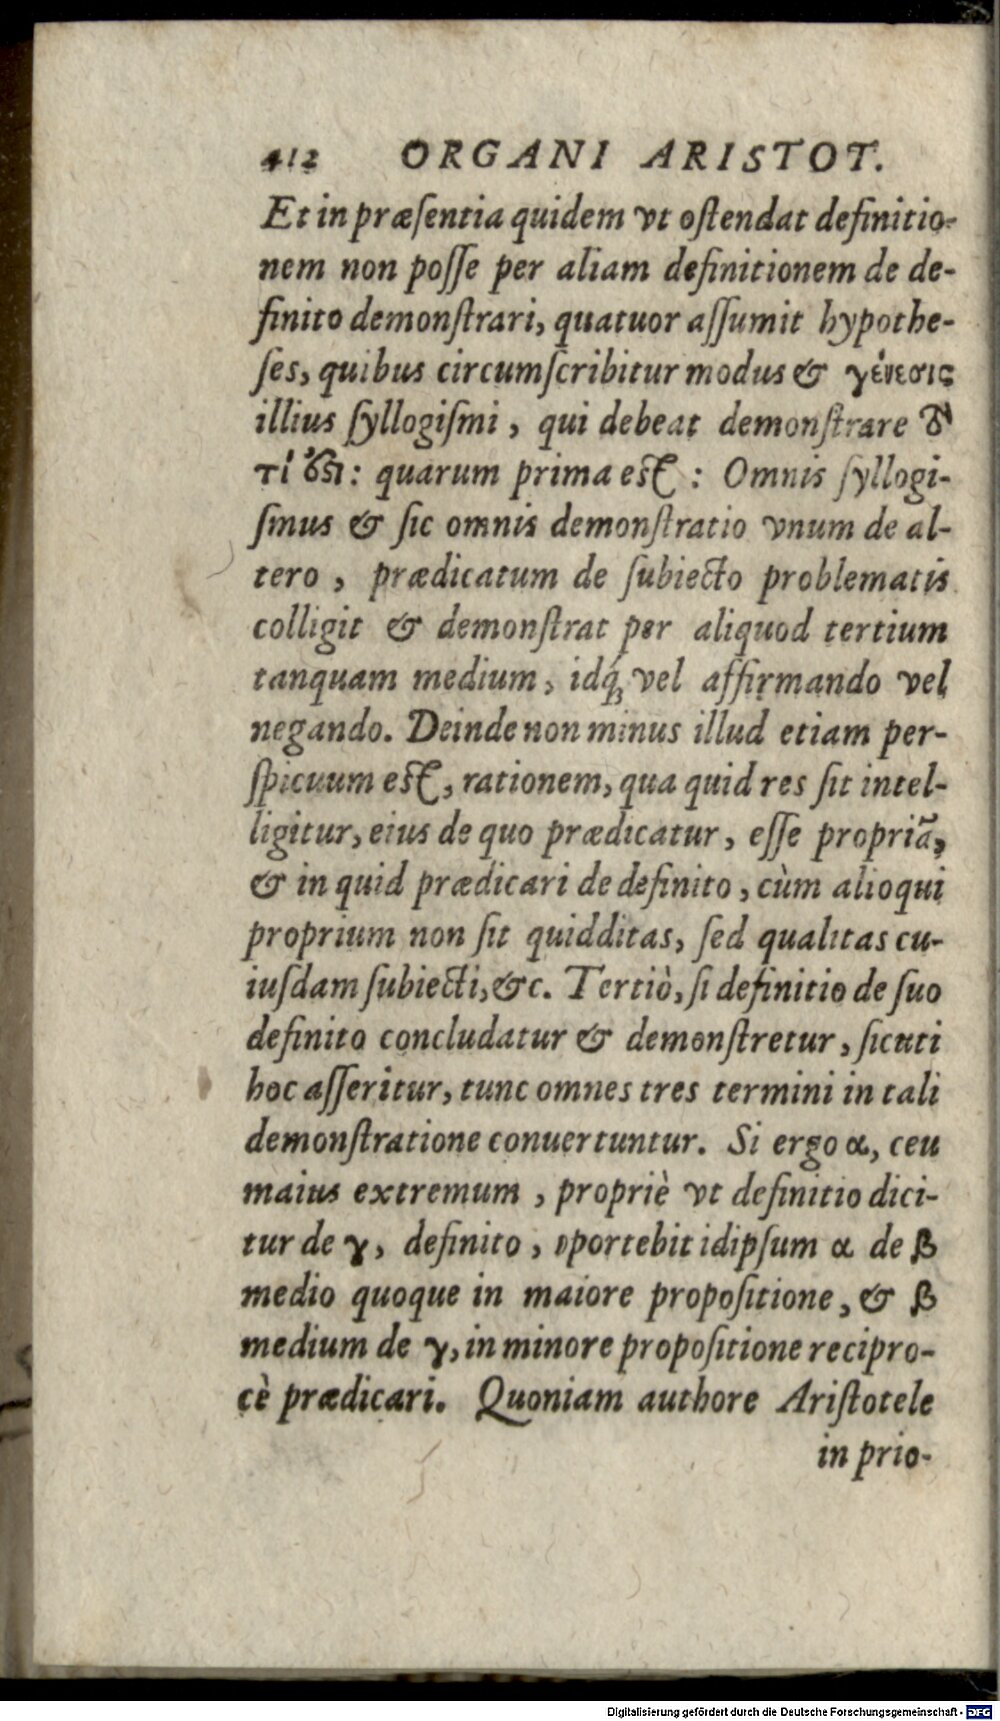 412 ORGANI ARISTOT.
Et in præſentia quidem vt oſtendat definitio-
nem non poſſe per aliam definitionem de de-
finito demonſtrari, quatuor aſſumit hypothe-
ſes, quibus circumſcribitur modus & γένεσις
illius ſyllogiſmi, qui debeat demonſtrare τὸ
τί ἐστι: quarum prima eſt: Omnis ſyllogi-
ſmus & ſic omnis demonſtratio vnum de al-
tero, prædicatum de ſubiecto problematis
colligit & demonſtrat per aliquod tertium
tanquam medium, idq́ꝫ vel affirmando vel
negando. Deinde non minus illud etiam per-
ſpicuum eſt, rationem, qua quid res ſit intel-
ligitur, eius de quo prædicatur, eſſe propriã,
& in quid prædicari de definito, cùm alioqui
proprium non ſit quidditas, ſed qualitas cu-
iuſdam ſubiecti, &c. Tertiò, ſi definitio de ſuo
definito concludatur & demonſtretur, ſicuti
hoc aſſeritur, tunc omnes tres termini in tali
demonſtratione conuertuntur. Si ergo α, ceu
maius extremum, propriè vt definitio dici-
tur de γ, definito, oportebit idipſum α de β
medio quoque in maiore propoſitione, & β
medium de γ, in minore propoſitione recipro-
cè prædicari. Quoniam authore Ariſtotele
in prio-
Digitalisierung gefördert durch die Deutsche Forschungsgemeinschaft - DFG